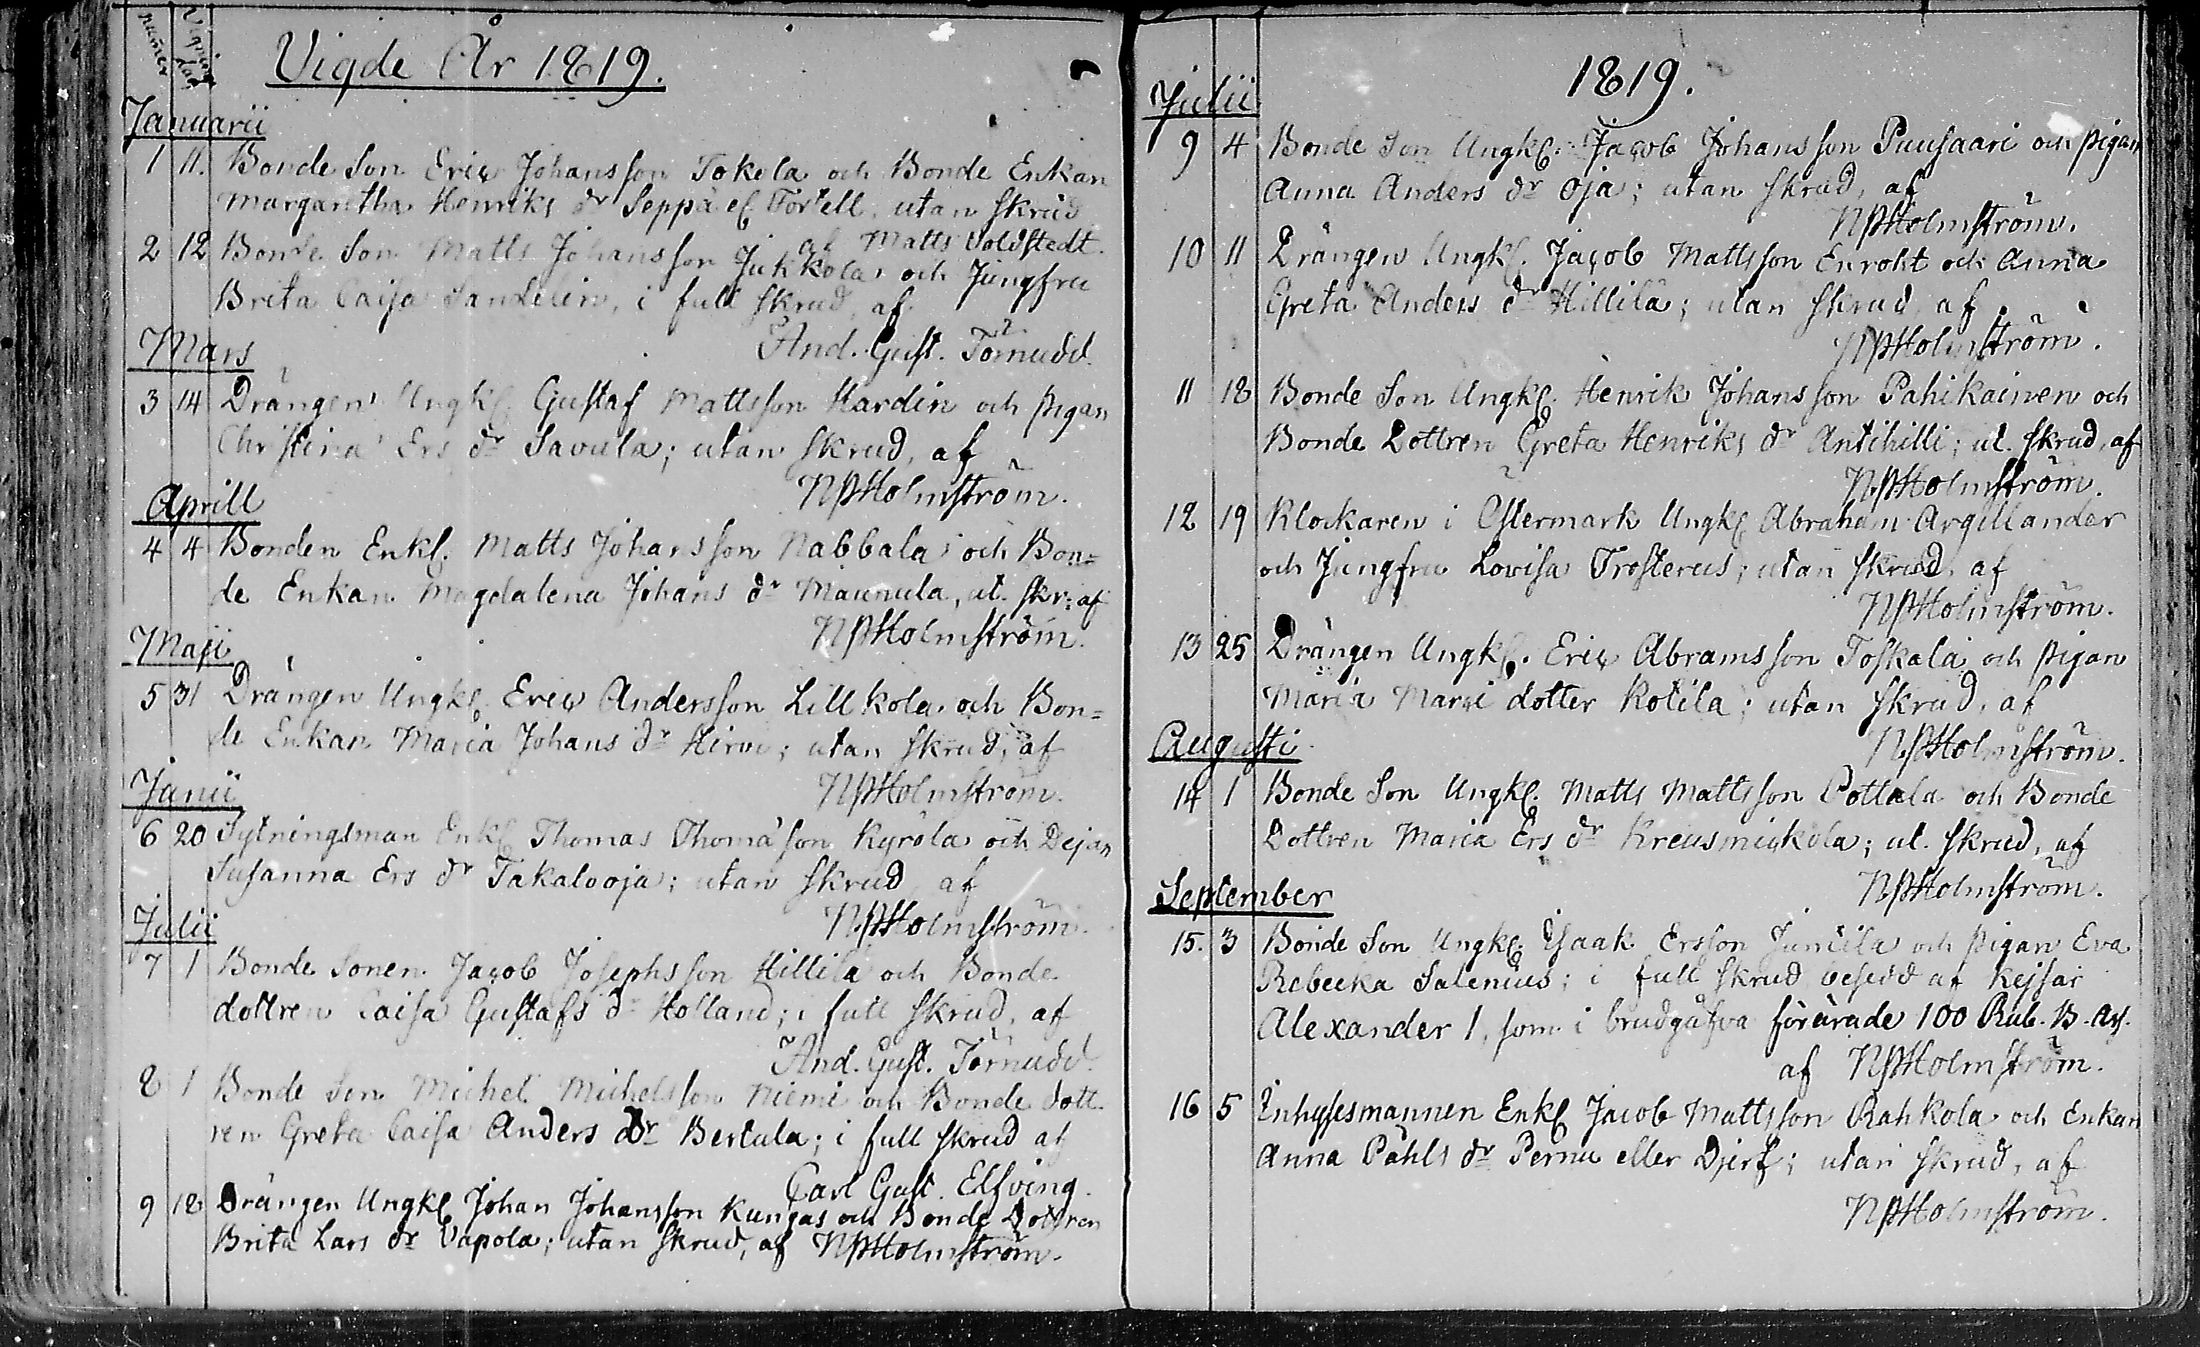 numer
Vignings dat
Vigde År 1819.
Januarii
1 11. Bonde Son Eric Johansson Tokola och Bonde Enkan
Margaretha Henriks dr Seppä el. Förtell, utan skrud
af Matts Voldstedt.
2 12 Bonde Son Matts Johansson Juhkola och Jungfru
Brita Caisa Sandelin, i full skrud, af
And. Gust. Törnudd.
Mars
3 14 Drängen Ungkl. Gustaf Mattsson Hardin och pigan
Christina Ers dr Savula; utan skrud, af
NPHolmström.
Aprill
4 4 Bonden Enkl. Matts Johansson Nabbala och Bon=
de Enkan Magdalena Johans dr Maunula, ut. skr: af
NPHolmström.
Maji
5 31 Drängen Ungkl. Eric Andersson Lillkola och Bon=
de Enkan Maria Johans dr Hirvi; utan skrud, af
NPHolmström.
Junii
6 20 Sytningsman Enkl. Thomas Thomasson Kyrölä och Dejan
Susanna Ers dr Takalooja; utan skrud af
NPHolmström.
Julii
7 1 Bonde Sonen Jacob Josephsson Hillilä och Bonde
dottren Caisa Gustafs dr Holland; i full skrud, af
And. Gust. Törnudd.
8 1 Bonde Son Michel Michelsson Niemi och Bonde dott
ren Greta Caisa Anders dr Bertula; i full skrud af
Carl Gust. Elfving.
9 18 Drängen Ungkl. Johan Johansson Kungas och Bonde Dottren
Brita Lars dr Vapola; utan skrud, af NPHolmström.
1819.
Julii
9 4 Bonde Son Ungkl. Jacob Johansson Puusaari och pigan
Anna Anders dr Oja; utan skrud, af
NPHolmström.
10 11 Drängen Ungkl. Jacob Mattsson Enroht och Anna
Greta Anders dr Hillilä; utan skrud, af
NPHolmström.
11 18 Bonde Son Ungkl. Henrik Johansson Pahikainen och
Bonde Dottren Greta Henriks dr Antihilli; ut. skrud, af
NPHolmström.
12 19 Klockaren i Östermark Ungkl. Abraham Argillander
och Jungfru Lovisa Frosterus; utan skrud, af
NPHolmström.
13 25 Drängen Ungkl. Eric Abramsson Toskala och pigan
Maria Marci dotter Kotila; utan skrud, af
NPHolmström.
Augusti
14 1 Bonde Son Ungkl. Matts Mattsson Pottala och Bonde
Dottren Maria Ers dr Kreusmickola; ut. skrud, af
NPHolmström.
September
15. 3 Bonde Son Ungkl. Isaak Ersson Junttila och pigan Eva
Rebecka Salenius; i full skrud besedd af Kejsar
Alexander 1, som i brudgåfva förärade 100 Rub. B. Ass.
af NPHolmström.
16 5 Inhysesmannen Enkl. Jacob Mattsson Rahkola och Enkan
Anna Påhls dr Pernu eller Djerf; utan skrud, af
NPHolmström.